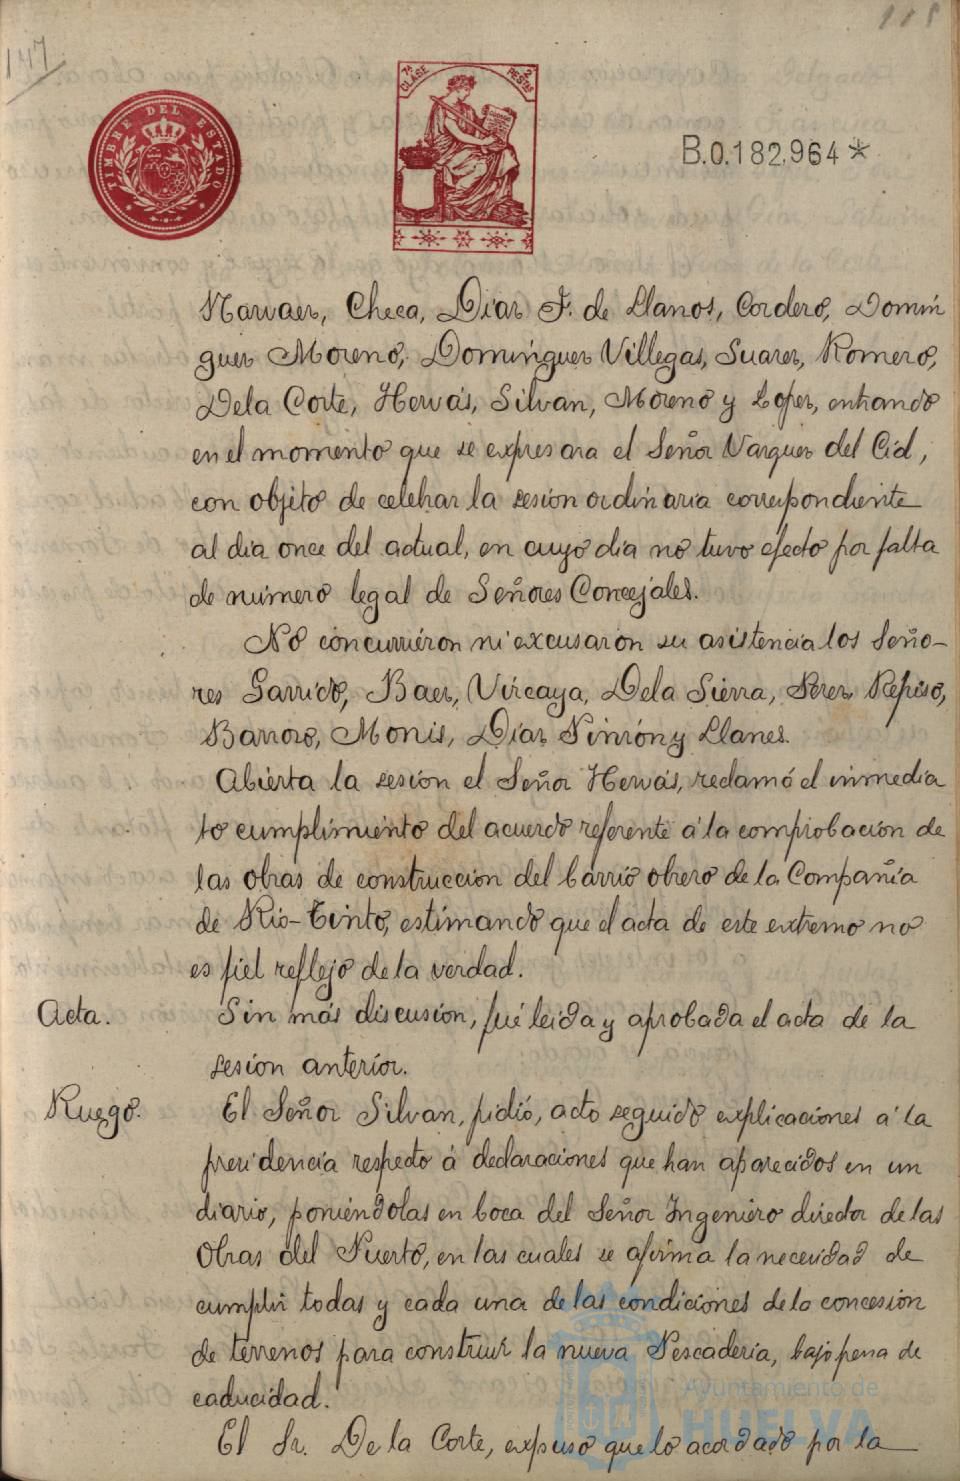 147
118
TIMBRE DEL ESTADO
7ª CLASE 2 PESETAS
B.0.182,964*
Narvaez, Checa, Díaz F. de Llanos, Cordero, Domín
guez Moreno, Domínguez Villegas, Suarez, Romero,
De la Corte, Hervás, Silvan, Moreno y Lopez, entrando
en el momento que se expresara el Señor Vazquez del Cid,
con objeto de celebrar la sesión ordinaria correspondiente
al dia once del actual, en cuyo dia no tuvo efecto por falta
de número legal de Señores Concejales.
No concurrieron ni excusaron su asistencia los Seño-
res Garrido, Baez, Vizcaya, De la Sierra, Perez Repiso,
Barroso, Monis, Díaz Pinzón y Llanes.
Abierta la sesión el Señor Hervás, reclamó el inmedia
to cumplimiento del acuerdo referente á la comprobación de
las obras de construcción del barrio obrero de la Compañía
de Rio-Tinto, estimando que el acta de este extremo no
es fiel reflejo de la verdad.
Acta. Sin más discusión, fué leida y aprobada el acta de la
sesión anterior.
Ruego. El Señor Silvan, pidió, acto seguido explicaciones á la
presidencia respecto á declaraciones que han aparecidos en un
diario, poniéndolas en boca del Señor Ingeniero director de las
Obras del Puerto, en las cuales se afirma la necesidad de
cumplir todas y cada una de las condiciones de la concesión
de terrenos para construir la nueva Pescaderia, bajo pena de
caducidad.
El Sr. De la Corte, expuso que lo acordado por la
Ayuntamiento de
HUELVA